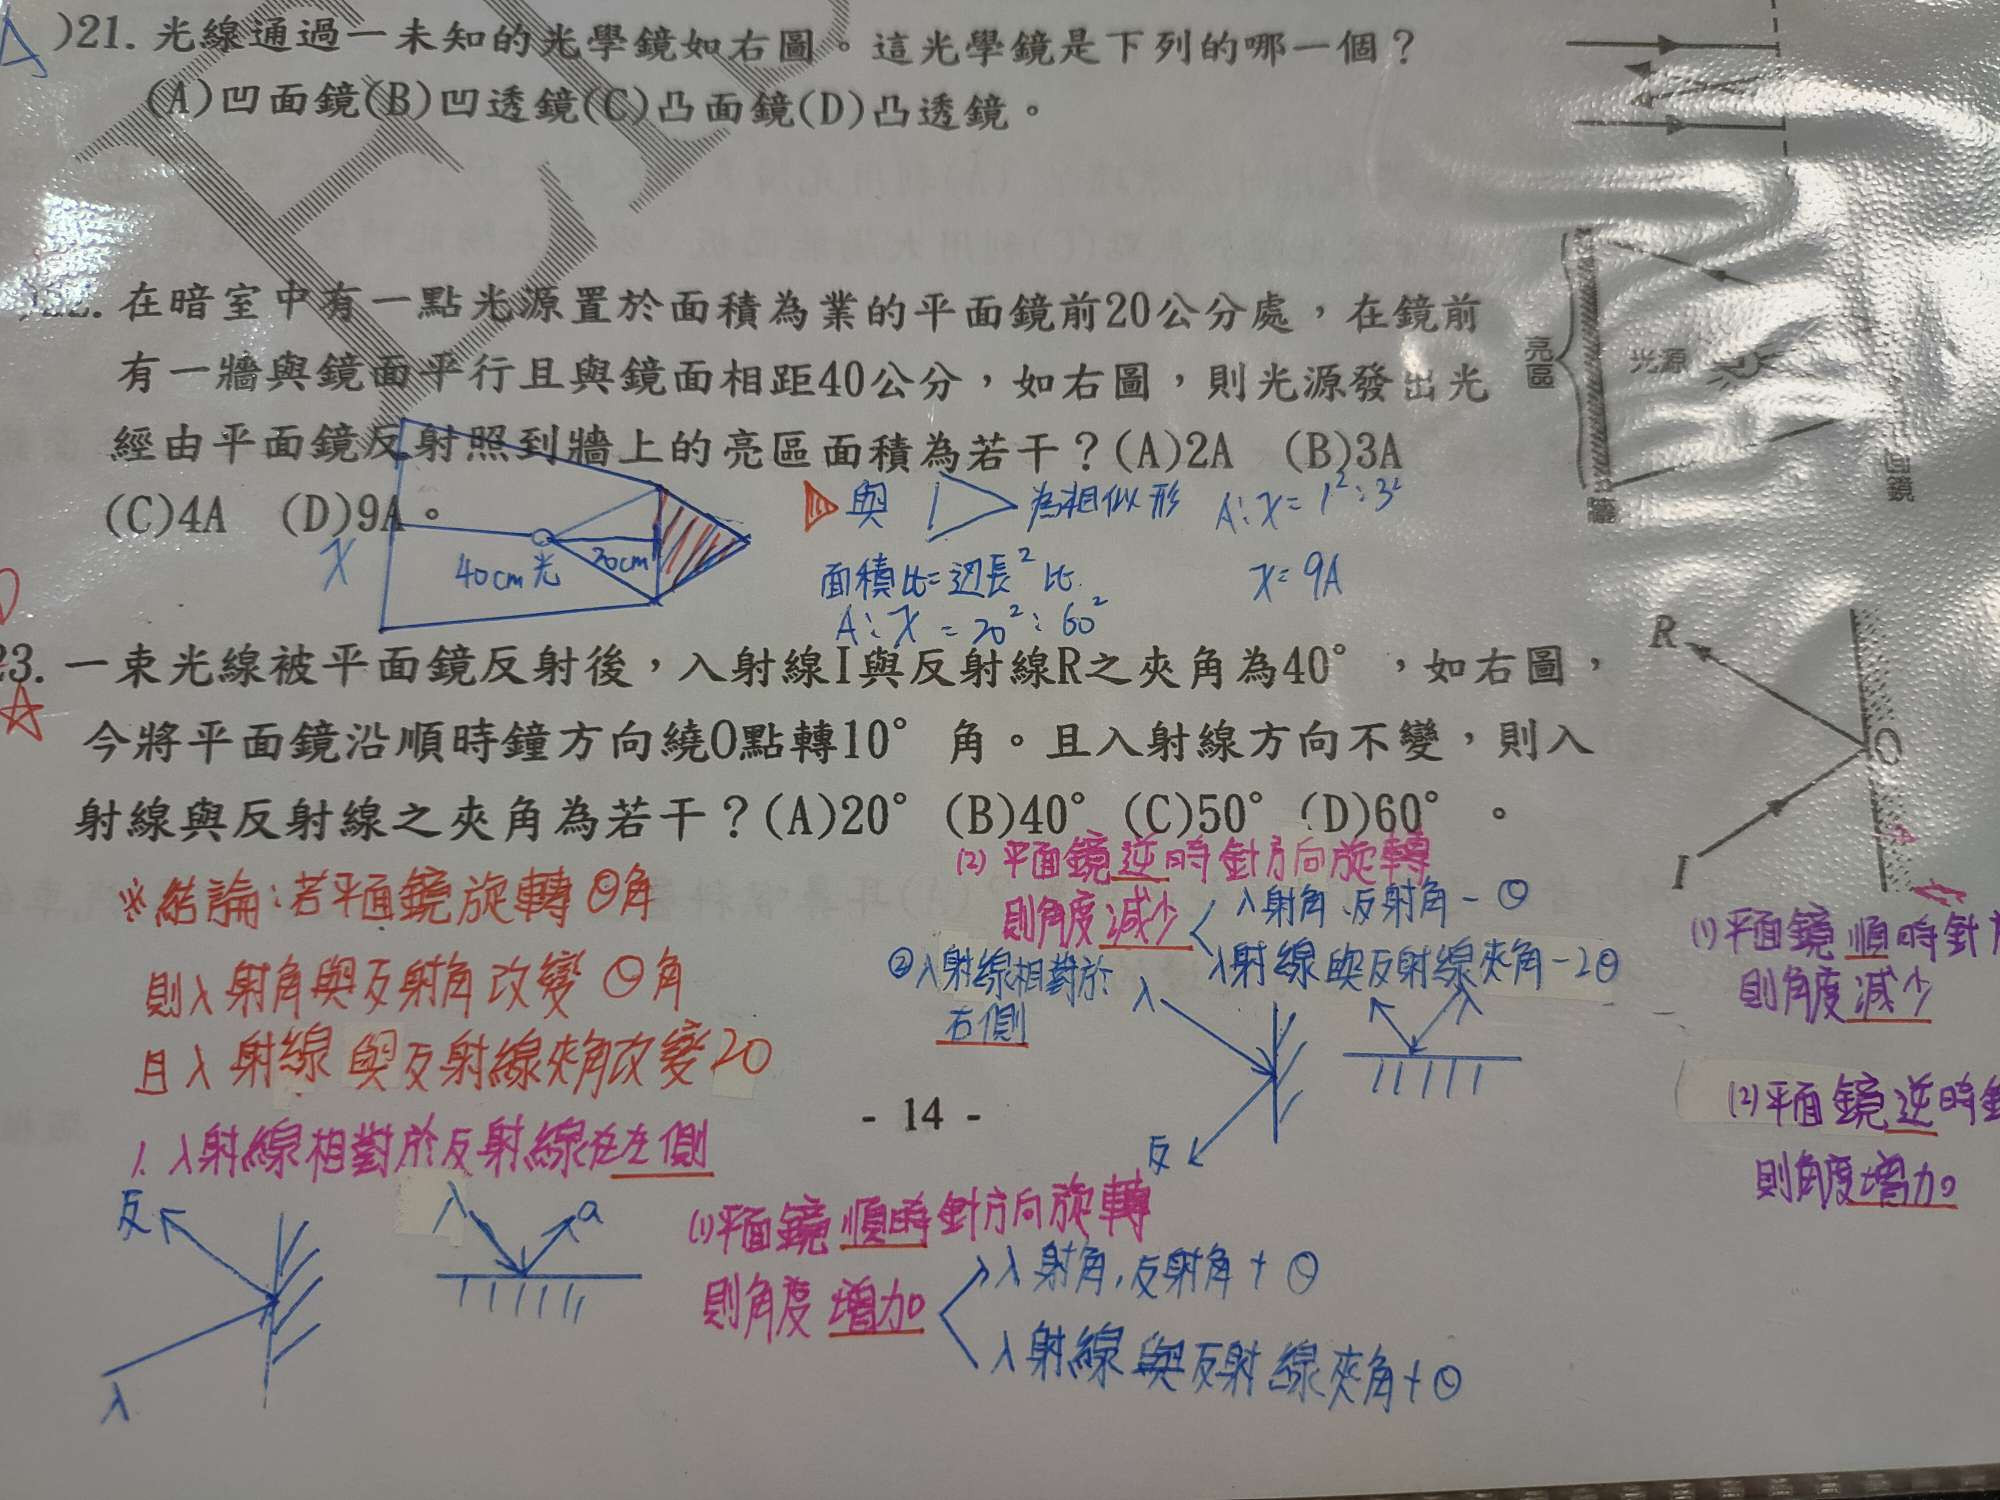 )21. 光線通過一未知的光學鏡如右圖。這光學鏡是下列的哪一個？
(A)凹面鏡(B)凹透鏡(C)凸面鏡(D)凸透鏡。
在暗室中有一點光源置於面積為業的平面鏡前20公分處，在鏡前
有一牆與鏡面平行且與鏡面相距40公分，如右圖，則光源發出光
經由平面鏡反射照到牆上的亮區面積為若干？(A)2A (B)3A
(C)4A (D)9A。
亮區
光源
面鏡
牆
X
40cm 光
20cm
與
為相似形
A:X=1²:3²
面積比=边長²比
X=9A
A:X=20²:60²
23. 一束光線被平面鏡反射後，入射線I與反射線R之夾角為40°，如右圖，
今將平面鏡沿順時鐘方向繞O點轉10° 角。且入射線方向不變，則入
射線與反射線之夾角為若干？(A)20° (B)40° (C)50° (D)60° 。
R
O
I
※結論:若平面鏡旋轉θ角
則入射角與反射角改變θ角
且入射線與反射線夾角改變2θ
1. 入射線相對於反射線在左側
反
入
入
(1)平面鏡順時針方向旋轉
則角度增加
入射角,反射角+θ
入射線與反射線夾角+θ
(2)平面鏡逆時針方向旋轉
則角度減少
入射角、反射角-θ
入射線與反射線夾角-2θ
②入射線相對於
右側
入
反
入
(1)平面鏡順時針
則角度減少
(2)平面鏡逆時針
則角度增加
- 14 -